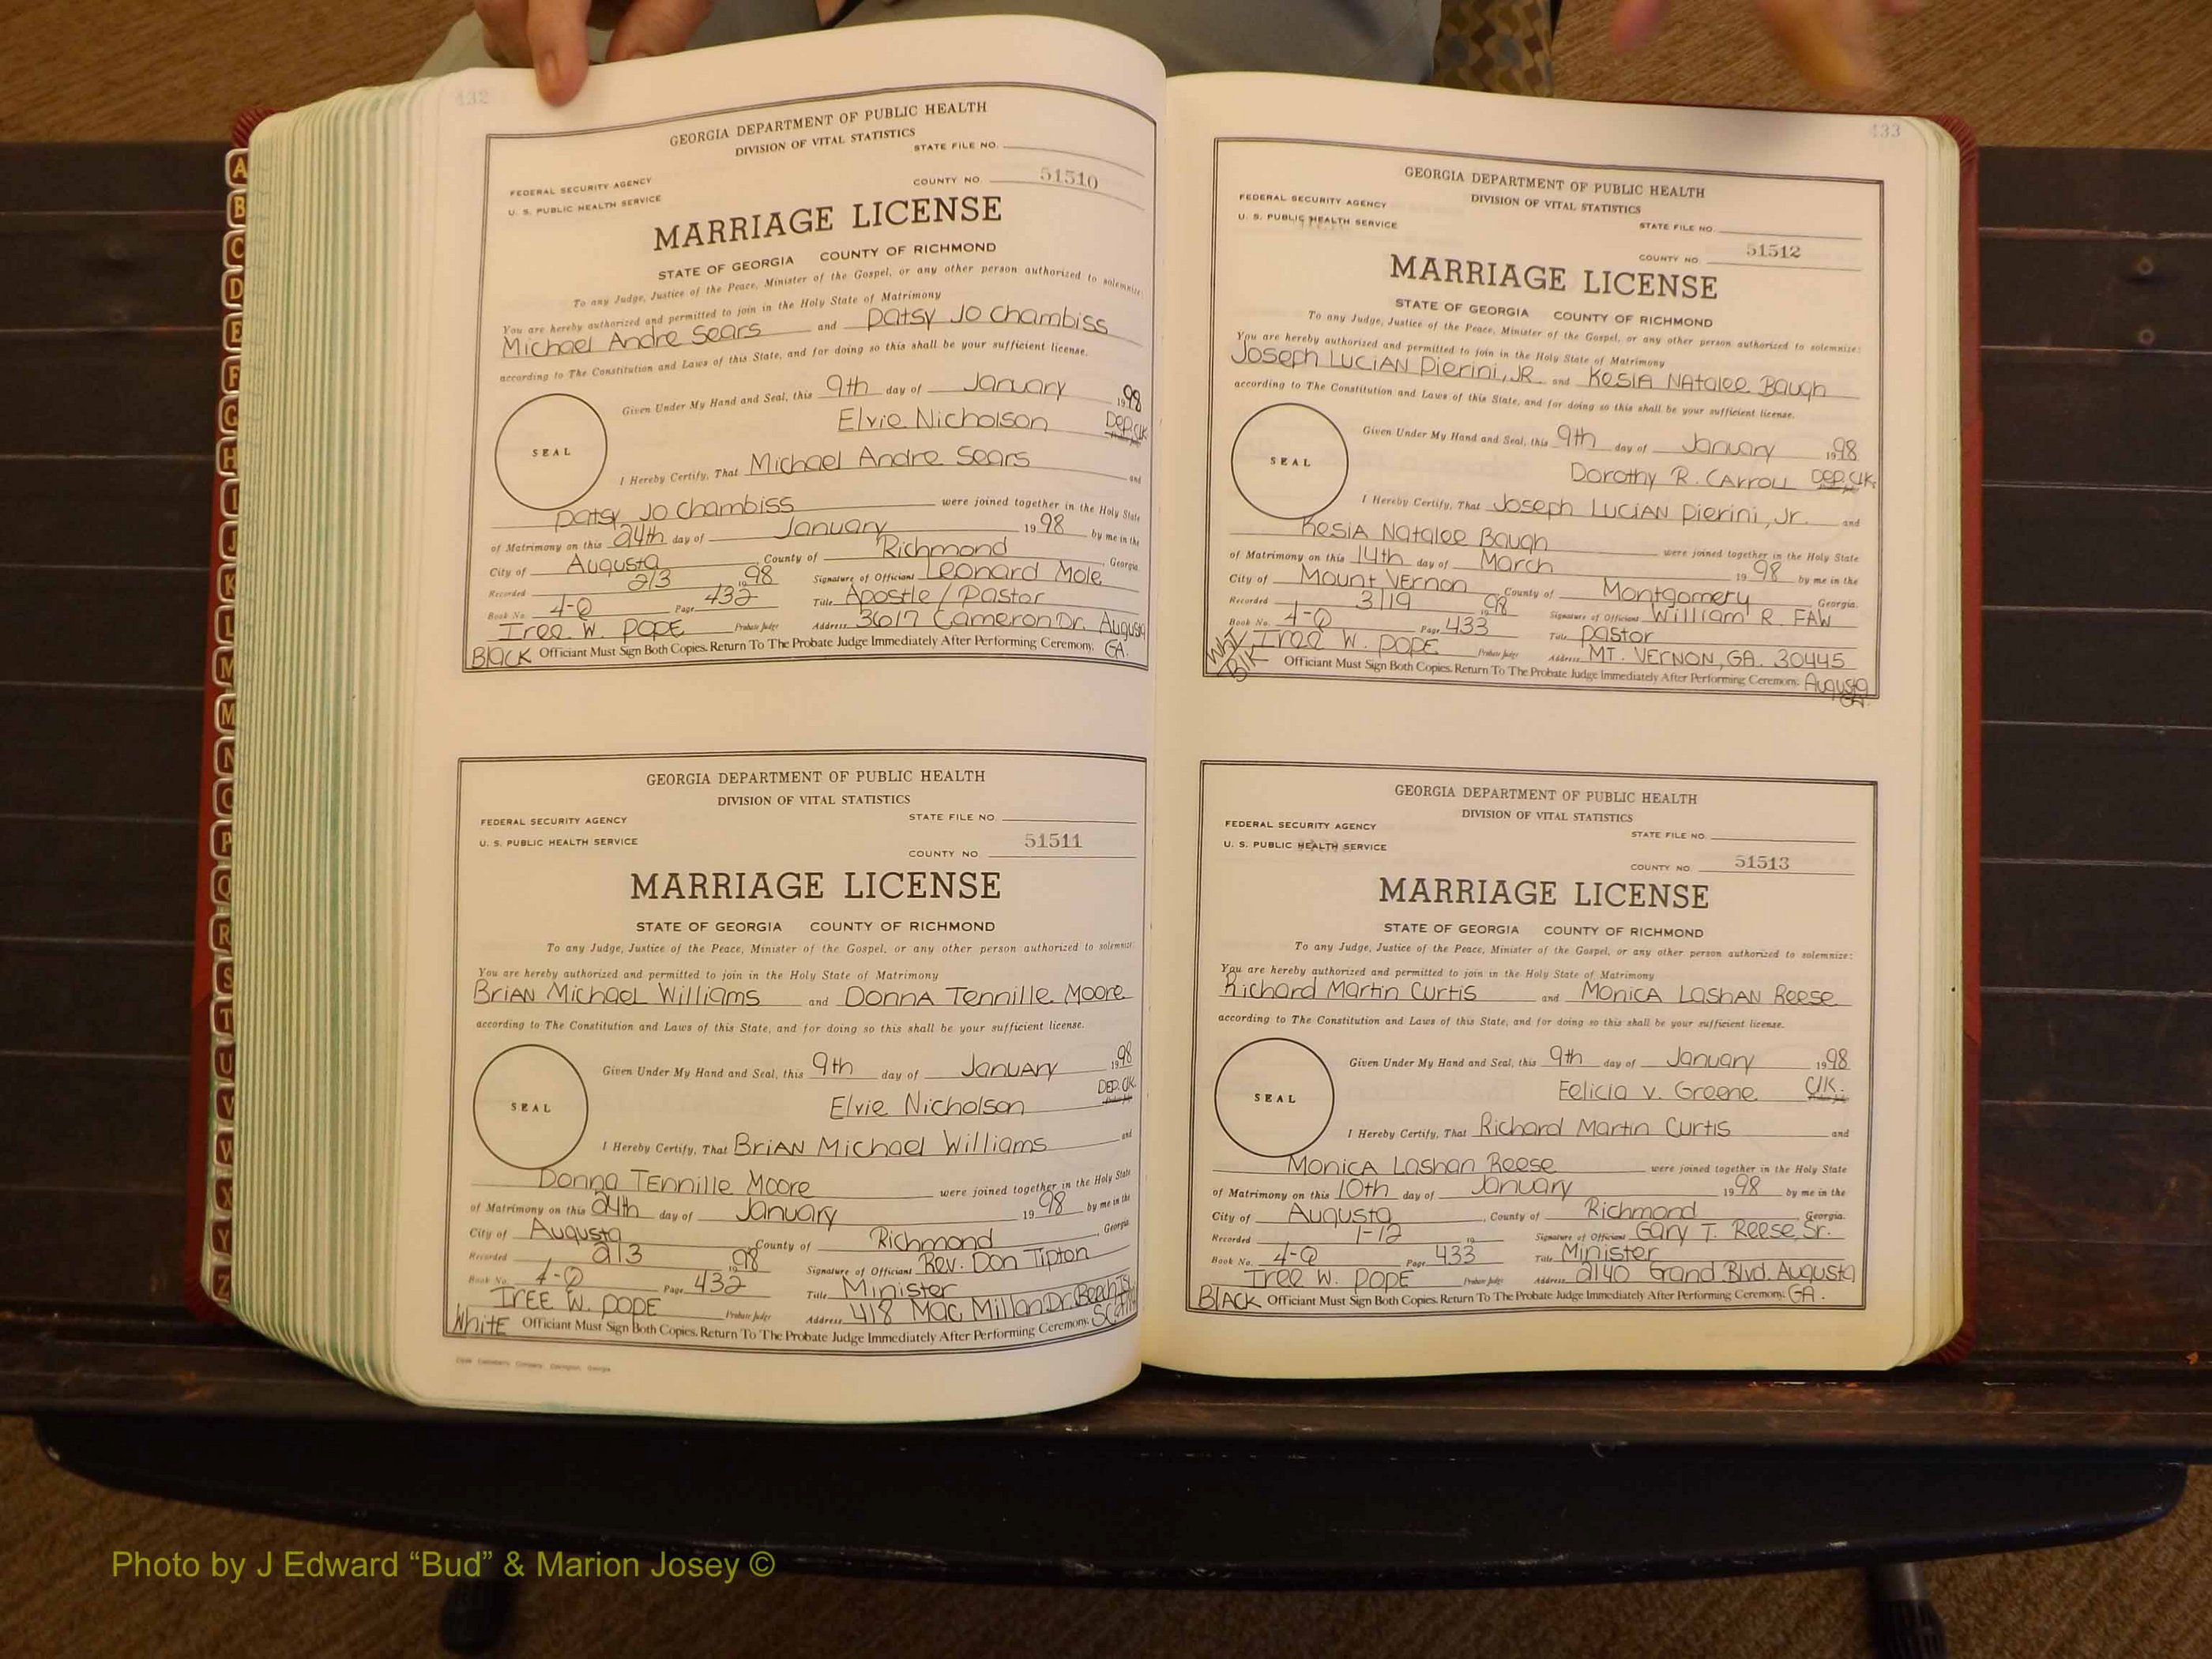 132
GEORGIA DEPARTMENT OF PUBLIC HEALTH
DIVISION OF VITAL STATISTICS
STATE FILE NO.
FEDERAL SECURITY AGENCY
U. S. PUBLIC HEALTH SERVICE
COUNTY NO. 51510
MARRIAGE LICENSE
STATE OF GEORGIA COUNTY OF RICHMOND
To any Judge, Justice of the Peace, Minister of the Gospel, or any other person authorized to solemnize:
You are hereby authorized and permitted to join in the Holy State of Matrimony
Michael Andre Sears and Patsy Jo Chambiss
according to The Constitution and Laws of this State, and for doing so this shall be your sufficient license.
Given Under My Hand and Seal, this 9th day of January 1998
Elvie Nicholson Dep. Clk
SEAL
I Hereby Certify, That Michael Andre Sears and
Patsy Jo Chambiss were joined together in the Holy State
of Matrimony on this 24th day of January 1998 by me in the
City of Augusta County of Richmond Georgia
Recorded 2/3 1998 Signature of Officiant Leonard Mole
Book No. 4-Q Page 432 Title Apostle / Pastor
Iree W. POPE Probate Judge Address 3617 Cameron Dr. Augusta
BLACK Officiant Must Sign Both Copies. Return To The Probate Judge Immediately After Performing Ceremony. GA.
GEORGIA DEPARTMENT OF PUBLIC HEALTH
DIVISION OF VITAL STATISTICS
FEDERAL SECURITY AGENCY STATE FILE NO.
U. S. PUBLIC HEALTH SERVICE
COUNTY NO. 51511
MARRIAGE LICENSE
STATE OF GEORGIA COUNTY OF RICHMOND
To any Judge, Justice of the Peace, Minister of the Gospel, or any other person authorized to solemnize:
You are hereby authorized and permitted to join in the Holy State of Matrimony
BriAN Michael Williams and DonnA Tennille Moore
according to The Constitution and Laws of this State, and for doing so this shall be your sufficient license.
Given Under My Hand and Seal, this 9th day of JanuAry 1998
Elvie Nicholson DEP. Clk
SEAL
I Hereby Certify, That BriAN Michael Williams and
Donna TEnnille Moore were joined together in the Holy State
of Matrimony on this 24th day of January 1998 by me in the
City of Augusta County of Richmond, Georgia
Recorded 2/3 1998 Signature of Officiant Rev. Don Tipton
Book No. 4-Q Page 432 Title Minister
IREE W. POPE Probate Judge Address 418 Mac Millan Dr. Beech Isl
WhiTE Officiant Must Sign Both Copies. Return To The Probate Judge Immediately After Performing Ceremony.
433
GEORGIA DEPARTMENT OF PUBLIC HEALTH
DIVISION OF VITAL STATISTICS
FEDERAL SECURITY AGENCY
U. S. PUBLIC HEALTH SERVICE STATE FILE NO.
COUNTY NO. 51512
MARRIAGE LICENSE
STATE OF GEORGIA COUNTY OF RICHMOND
To any Judge, Justice of the Peace, Minister of the Gospel, or any other person authorized to solemnize:
You are hereby authorized and permitted to join in the Holy State of Matrimony
Joseph LUCIAN Pierini, JR and KesiA NAtalee Baugh
according to The Constitution and Laws of this State, and for doing so this shall be your sufficient license.
Given Under My Hand and Seal, this 9th day of January 1998
Dorothy R. CArroll DEP. Clk.
SEAL
I Hereby Certify, That Joseph LUCIAN Pierini, Jr. and
Kesia Natalee Baugh were joined together in the Holy State
of Matrimony on this 14th day of March 1998 by me in the
City of Mount VErnon County of Montgomery Georgia.
Recorded 3/19 1998 Signature of Officiant William R. FAW
Book No. 4-Q Page 433 Title Pastor
Iree W. POPE Probate Judge Address MT. VERNON, GA. 30445
Wht/Blk Officiant Must Sign Both Copies. Return To The Probate Judge Immediately After Performing Ceremony. Augusta
GA.
GEORGIA DEPARTMENT OF PUBLIC HEALTH
DIVISION OF VITAL STATISTICS
FEDERAL SECURITY AGENCY STATE FILE NO.
U. S. PUBLIC HEALTH SERVICE
COUNTY NO. 51513
MARRIAGE LICENSE
STATE OF GEORGIA COUNTY OF RICHMOND
To any Judge, Justice of the Peace, Minister of the Gospel, or any other person authorized to solemnize:
You are hereby authorized and permitted to join in the Holy State of Matrimony
Richard Martin Curtis and MonicA LashAN Reese
according to The Constitution and Laws of this State, and for doing so this shall be your sufficient license.
Given Under My Hand and Seal, this 9th day of January 1998
Felicia V. Greene Clk.
SEAL
I Hereby Certify, That Richard Martin Curtis and
MonicA Lashan Reese were joined together in the Holy State
of Matrimony on this 10th day of January 1998 by me in the
City of Augusta, County of Richmond Georgia.
Recorded 1-12 19 Signature of Officiant Gary T. Reese, Sr.
Book No. 4-Q Page 433 Title Minister
Iree W. POPE Probate Judge Address 2140 Grand Blvd. Augusta
BLACK Officiant Must Sign Both Copies. Return To The Probate Judge Immediately After Performing Ceremony. GA.
A
B
C
D
E
F
G
H
I
J
K
L
M
Mc
N
O
P
Q
R
S
T
U
V
W
X
Y
Z
Photo by J Edward “Bud” & Marion Josey ©